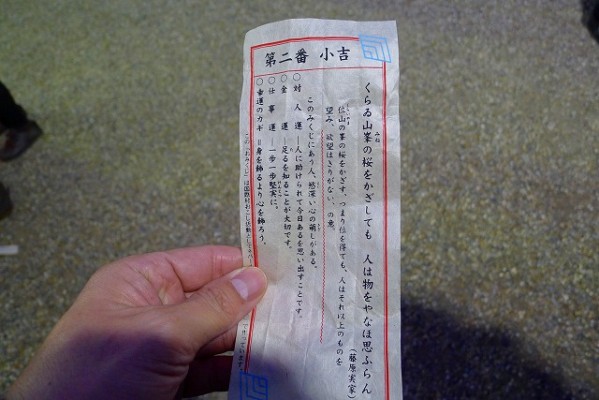 第二番 小吉
くらゐ山峯の桜をかざしても 人は物をやなほ思ふらん
(藤原実家)
位山の峯の桜をかざす、つまり位を得ても、人はそれ以上のものを
望み、欲望はきりがない、の意。
このみくじにあう人、慾深い心の萌しがある。
○対人運―人に助けられて今日あるを思い出すことです。
○金運―足るを知ることが大切です。
○仕事運―一歩一歩堅実に。
○幸運のカギ=身を飾るより心を飾ろう。
この「おみくじ」は